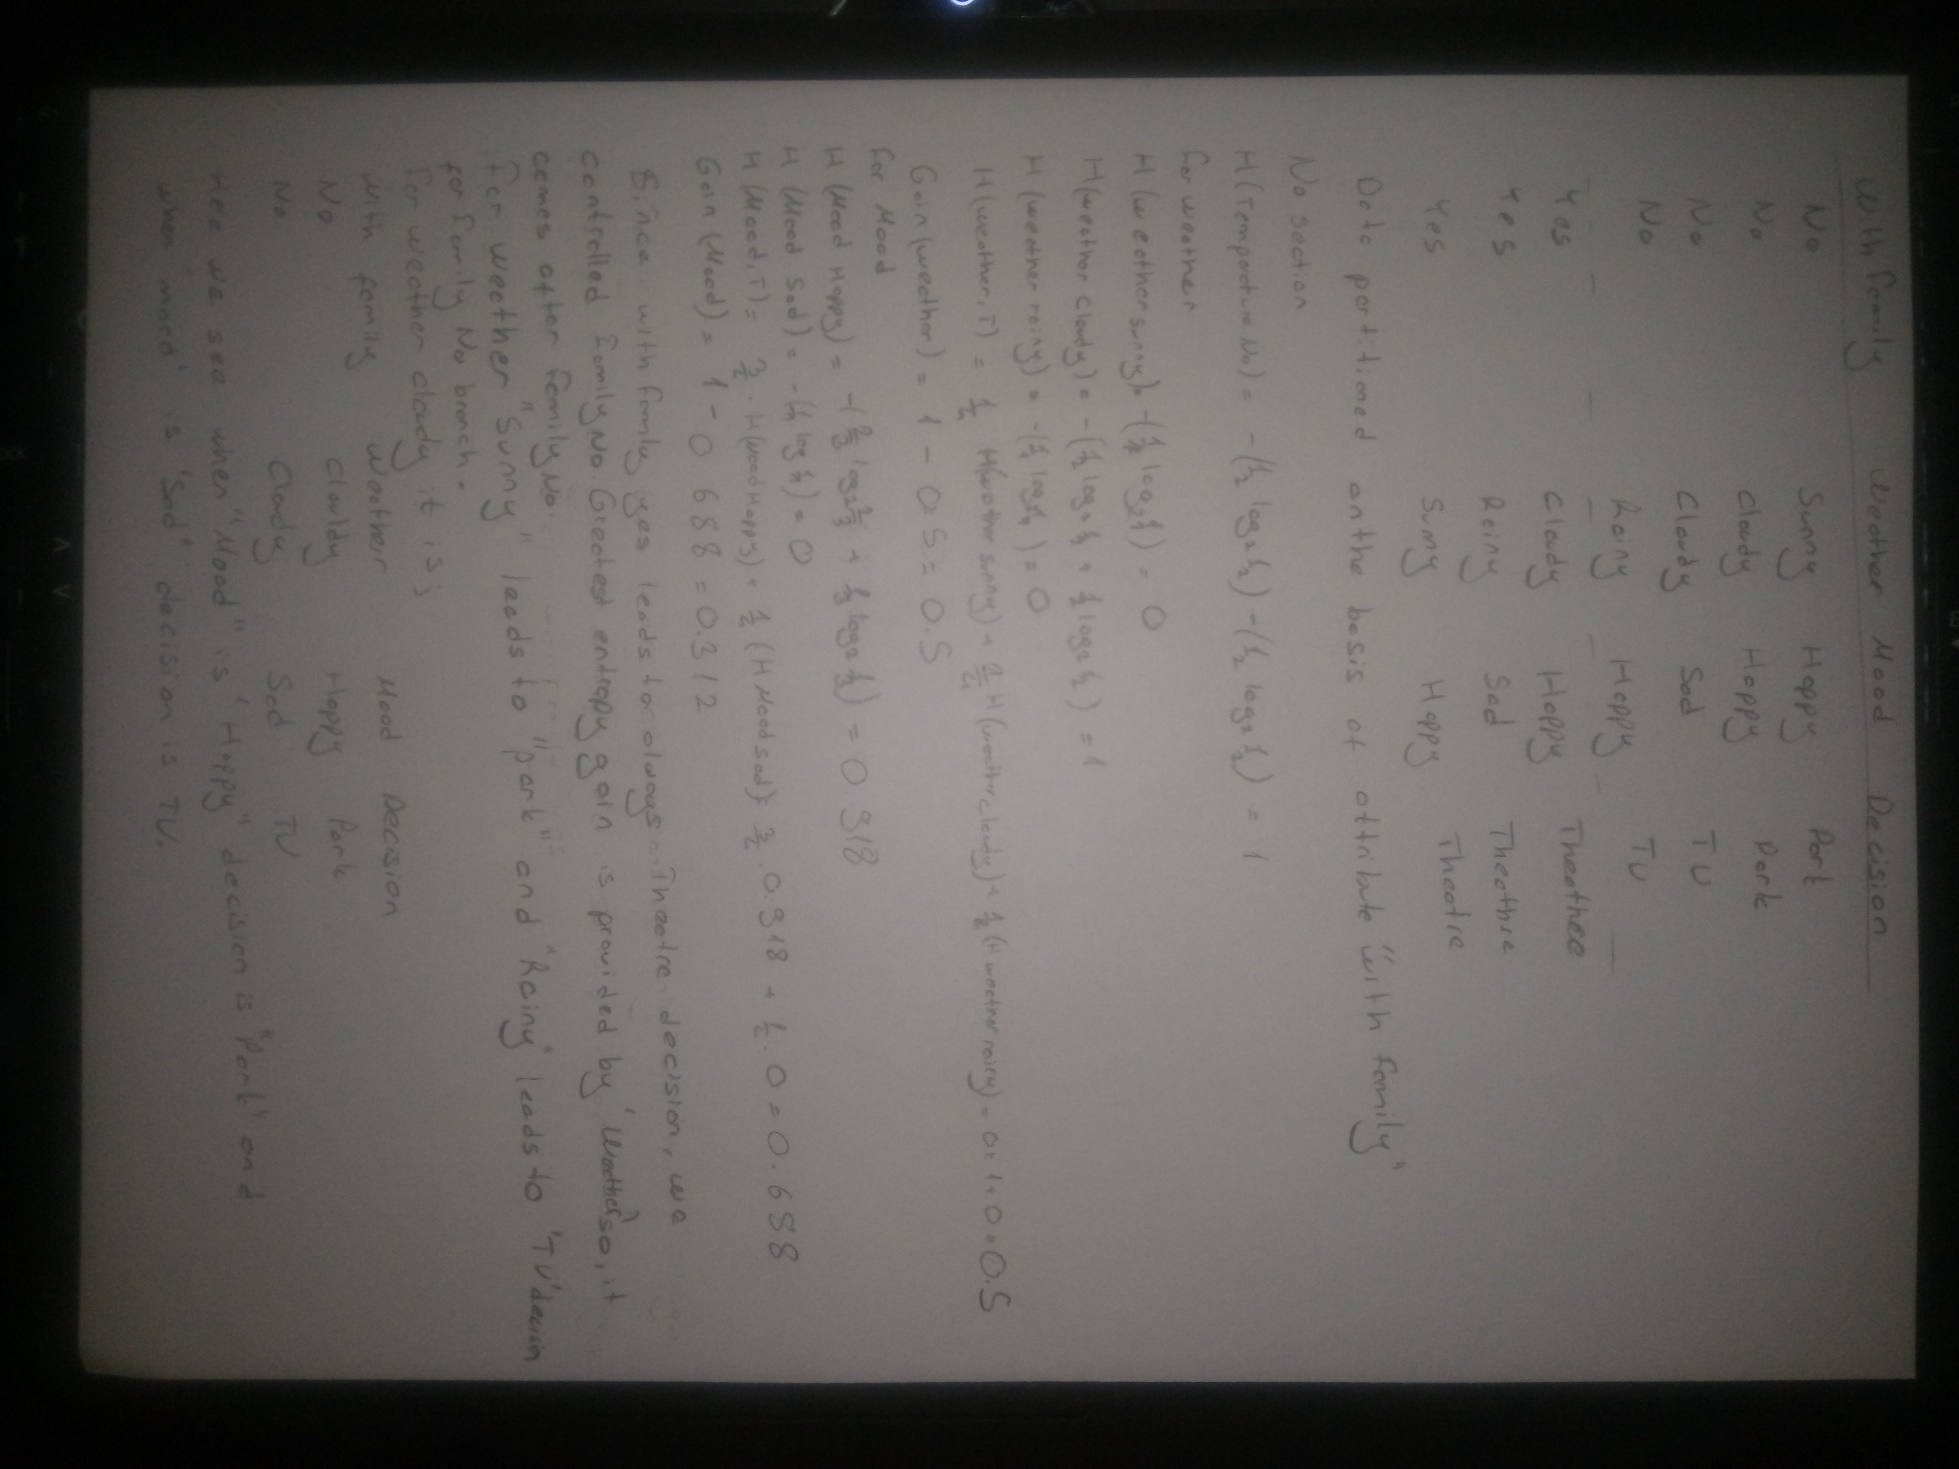 With family Weather Mood Decision
No Sunny Happy Park
No Cloudy Happy Park
No Cloudy Sad TV
No Rainy Happy TV
Yes Cloudy Happy Theathee
Yes Rainy Sad Theathre
Yes Sunny Happy Theatre
Data portitioned onthe basis of attribute "with family"
No section
H(Temperature No) = -(1/2 log2 1/2) - (1/2 log2 1/2) = 1
for weather
H(weather sunny) = -(1/1 log2 1) = 0
H(weather cloudy) = -(1/2 log2 1/2 + 1/2 log2 1/2) = 1
H(weather rainy) = -(1/1 log 1/1) = 0
H(weather, T) = 1/4 H(weather sunny) + 2/4 H(weather cloudy) + 1/4 (H weather rainy) = 0+1+0=0.5
Gain(weather) = 1 - 0.5 = 0.5
for Mood
H(Mood Happy) = -(2/3 log2 2/3 + 1/3 log2 1/3) = 0.918
H(Mood Sad) = -(1/1 log 1/1) = 0
H(Mood, T) = 3/4 . H(Mood Happy) + 1/4 (H Mood sad) = 3/4 . 0.918 + 1/4 . 0 = 0.688
Gain(Mood) = 1 - 0.688 = 0.312
Since with family yes leads to always Theatre decision, we
controlled family No Greatest entropy gain is provided by "Weather" so, it
comes after family No.
For weather "Sunny" leads to "park" and "Rainy" leads to "TV" decision
for family No branch.
for weather cloudy it is;
with family Weather Mood Decision
No Clouldy Happy Park
No Cloudy Sad TV
Here we see when "Mood" is "Happy" decision is "Park" and
when "mood" is "Sad" decision is TV.